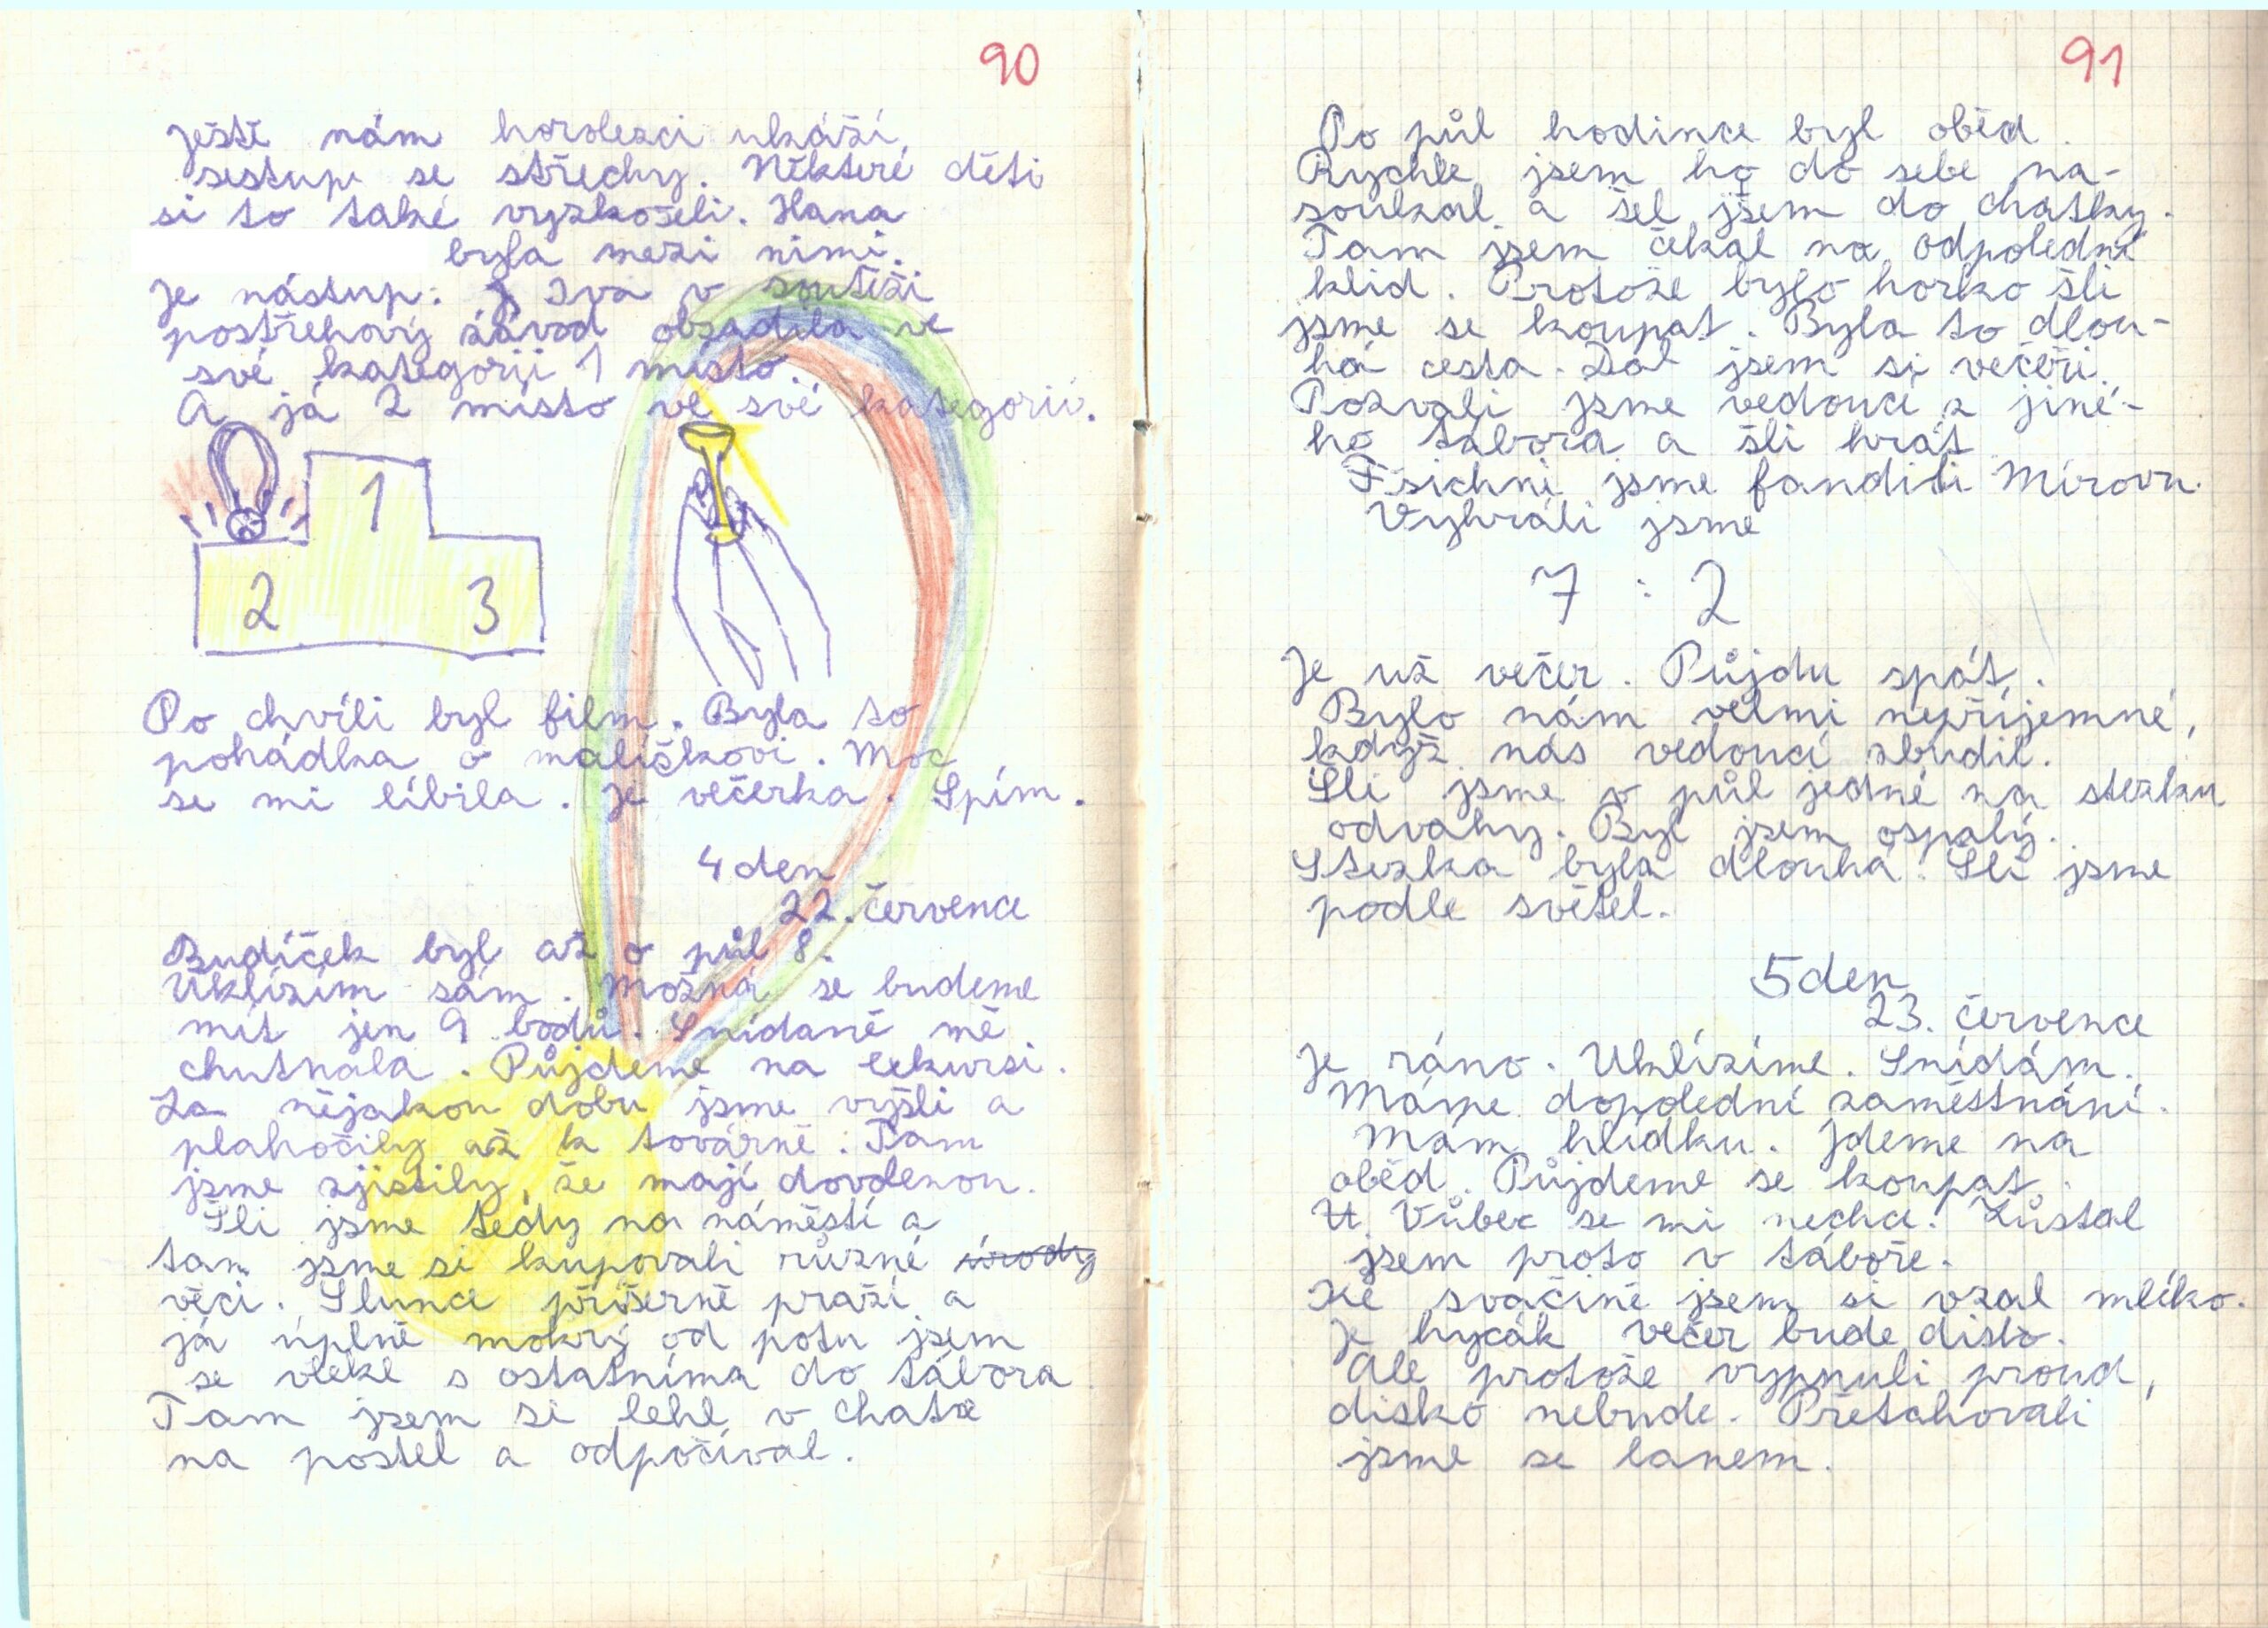 90
Ještě nám horolezci ukáží,
sestup se střechy. Některé děti
si to také vyzkoušeli. Hana
byla mezi nimi.
Je nástup: Iva v soutěži
postřehový závod obsadila ve
své kategorji 1 místo.
A já 2 místo ve své kategorii.
1
2 3
Po chvíli byl film. Byla to
pohádka o maličkovi. Moc
se mi líbila. Je večerka. Spím.
4 den
22. července
Budíček byl až o půl 8.
Uklízím sám. Možná se budeme
mít jen 9 bodů. Snídaně mě
chutnala. Půjdeme na exkursi.
Za nějakou dobu jsme vyšli a
plahočily až k továrně. Tam
jsme zjistily, že mají dovolenou.
Šli jsme tedy na náměstí a
tam jsme si kupovali různé
věci. Slunce příšerně praží a
já úplně mokrý od potu jsem
se vlekl s ostatníma do tábora.
Tam jsem si lehl v chatce
na postel a odpočíval.
91
Po půl hodince byl oběd.
Rychle jsem ho do sebe na-
soukal a šel jsem do chatky.
Tam jsem čekal na odpolední
klid. Protože bylo horko šli
jsme se koupat. Byla to dlou-
há cesta. Dal jsem si večeři.
Pozvali jsme vedoucí z jiné-
ho tábora a šli hrát
Fšichni jsme fandili Mírovu.
Vyhráli jsme
7 : 2
Je už večer. Půjdu spát.
Bylo nám velmi nepříjemné,
když nás vedoucí zbudil.
Šli jsme v půl jedné na stezku
odvahy. Byl jsem ospalý.
Stezka byla dlouhá. Šli jsme
podle světel.
5 den
23. července
Je ráno. Uklízíme. Snídám.
Máme dopolední zaměstnání.
Mám hlídku. Jdeme na
oběd. Půjdeme se koupat.
Vůbec se mi nechce. Zůstal
jsem proto v táboře.
Ke svačině jsem si vzal mlíko.
Je hycák večer bude disko.
Ale protože vypnuli proud,
disko nebude. Přetahovali
jsme se lanem.